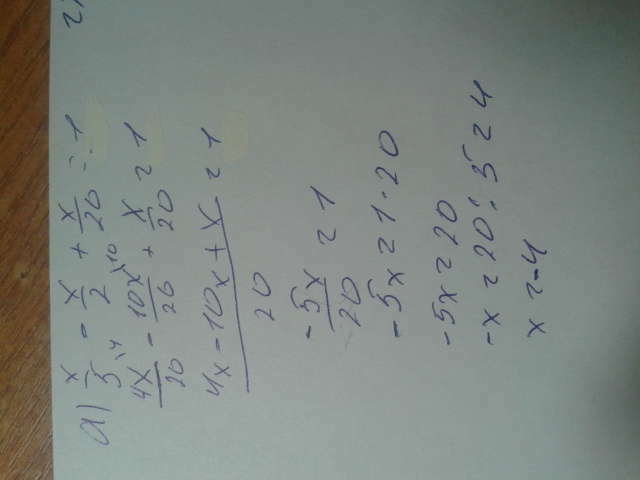 а) x/5 - x/2 + x/20 = 1
4x/20 - 10x/20 + x/20 = 1
4x - 10x + x/20 = 1
-5x/20 = 1
-5x = 1·20
-5x = 20
-x = 20 : 5 = 4
x = -4